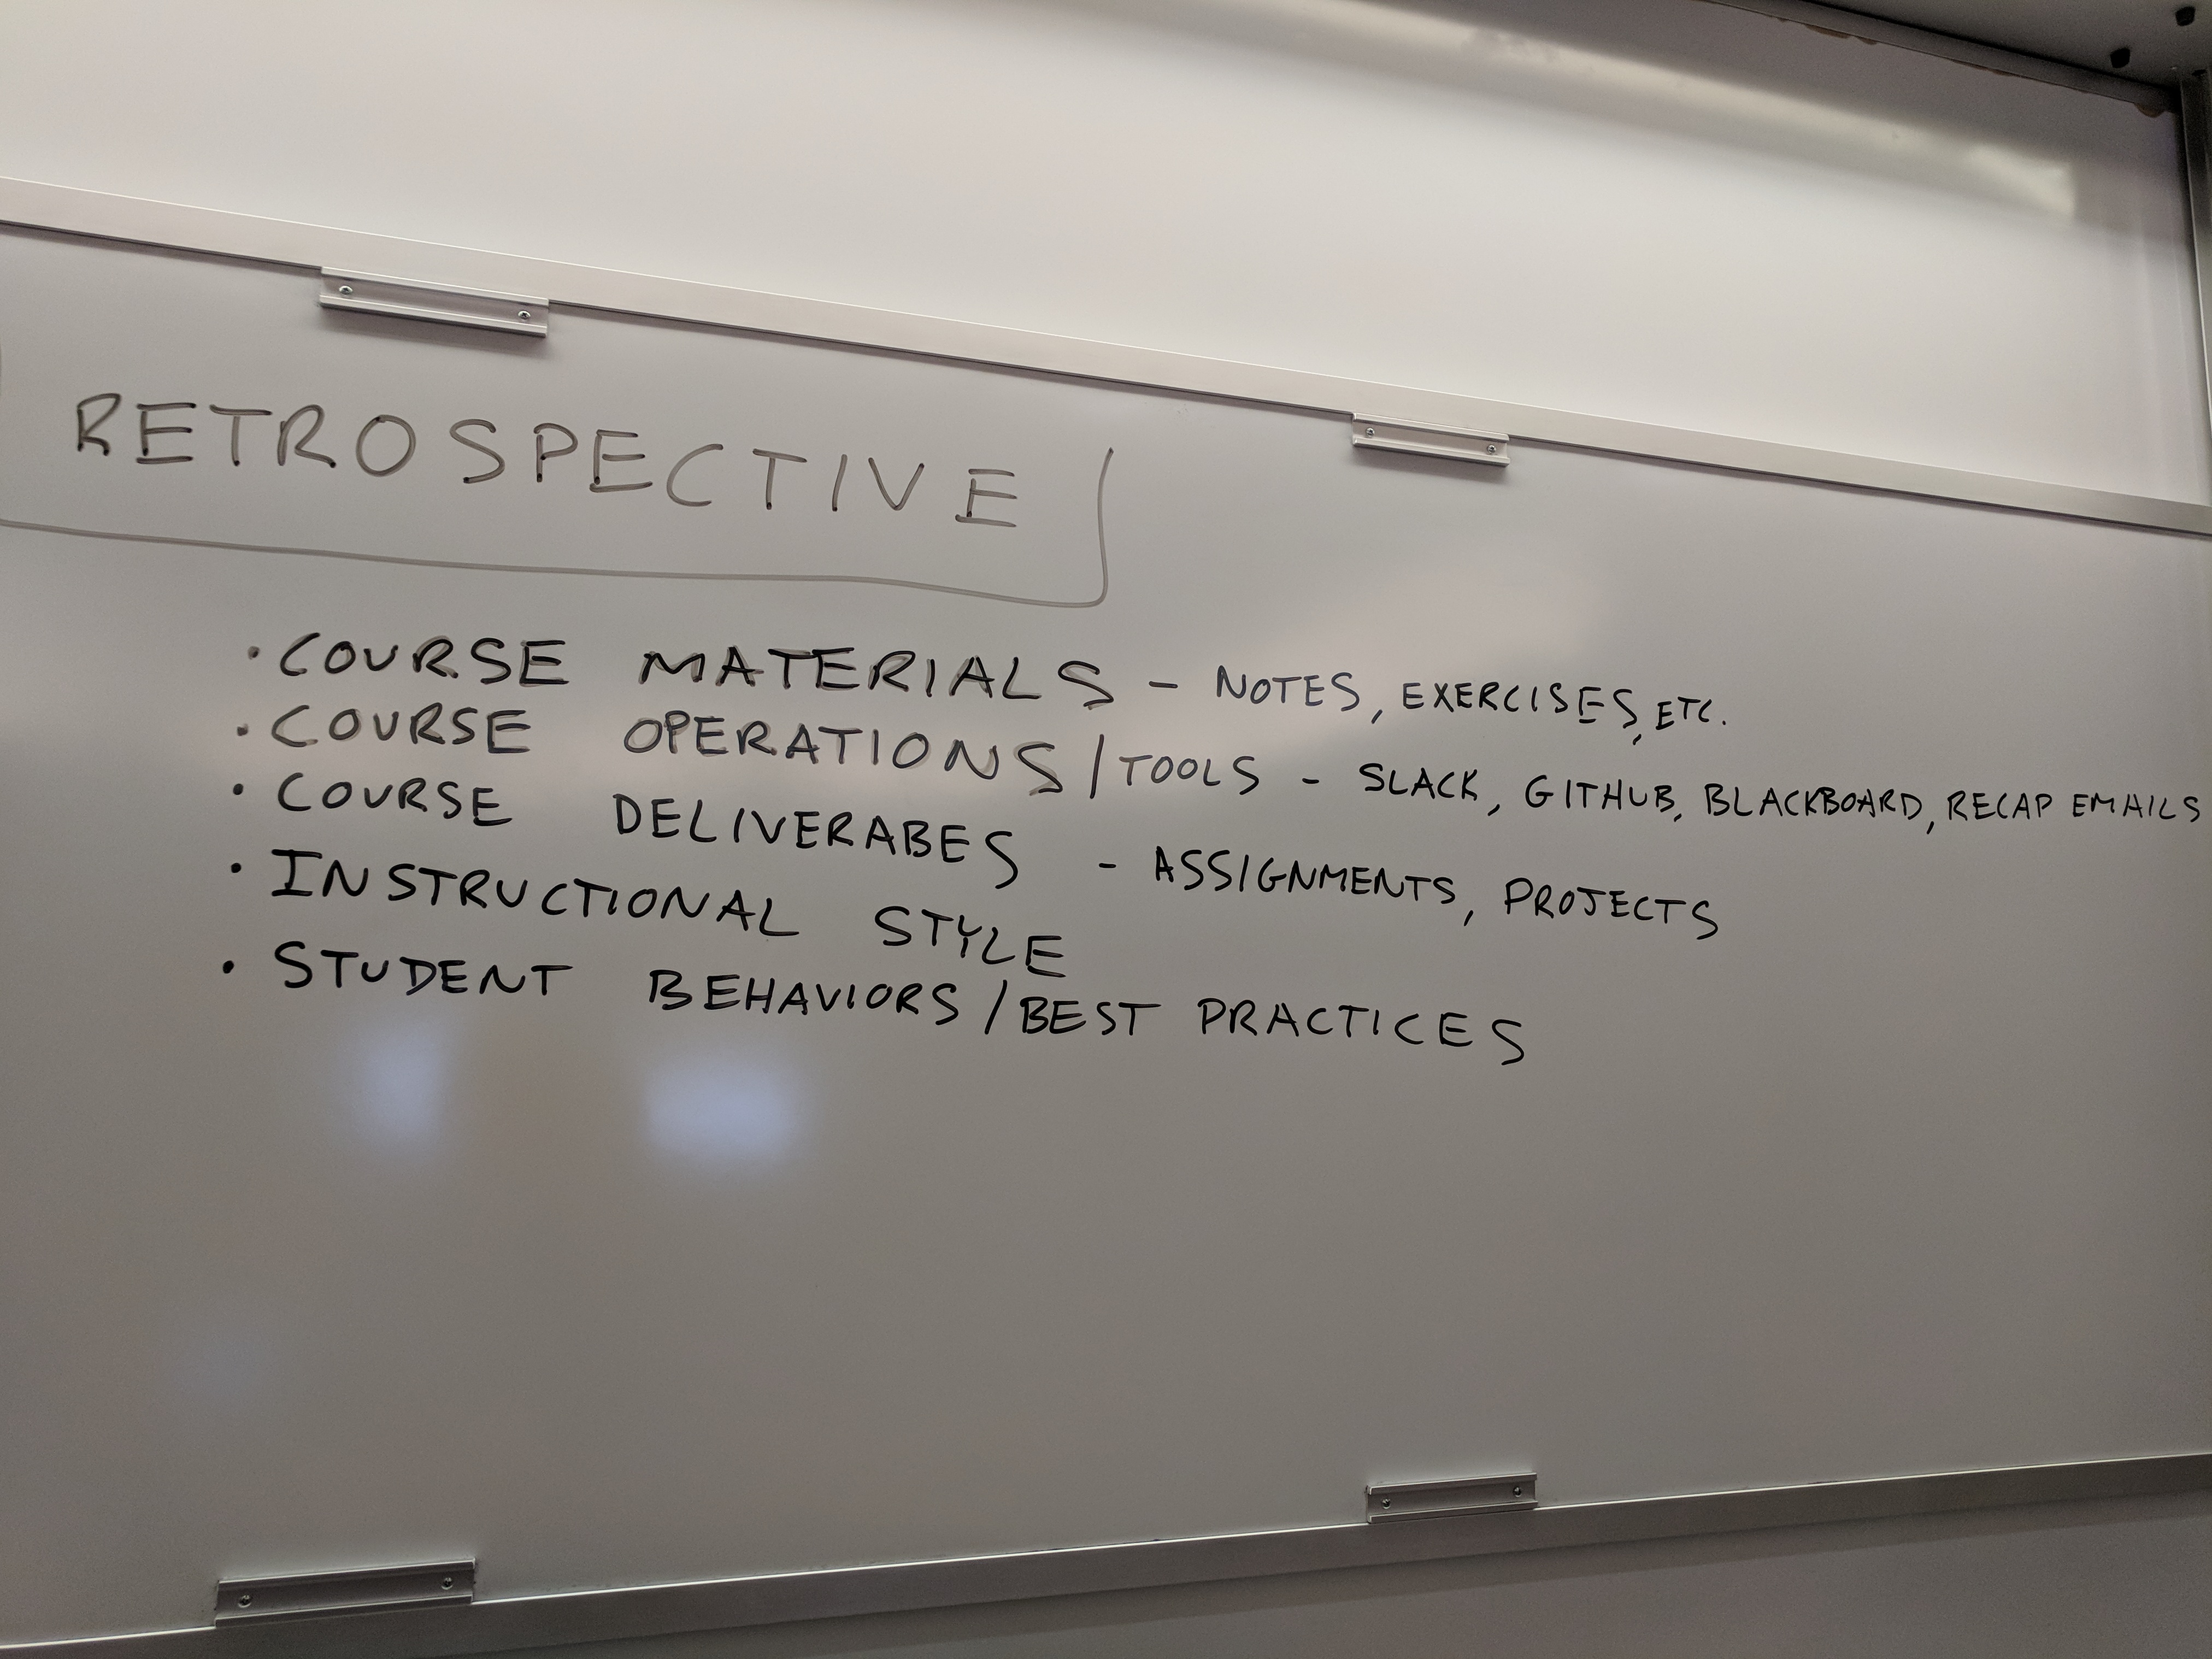 RETROSPECTIVE
• COURSE MATERIALS - NOTES, EXERCISES, ETC.
• COURSE OPERATIONS/TOOLS - SLACK, GITHUB, BLACKBOARD, RECAP EMAILS
• COURSE DELIVERABES - ASSIGNMENTS, PROJECTS
• INSTRUCTIONAL STYLE
• STUDENT BEHAVIORS/BEST PRACTICES